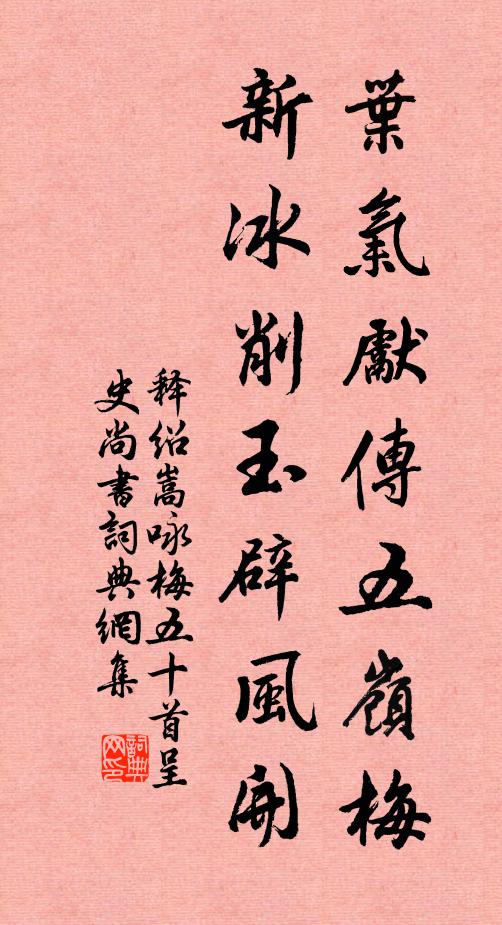 葉氣獻傳五嶺梅
新冰削玉辟風開
释绍嵩咏梅五十首呈
史尚書詞典網集
詞典
网印